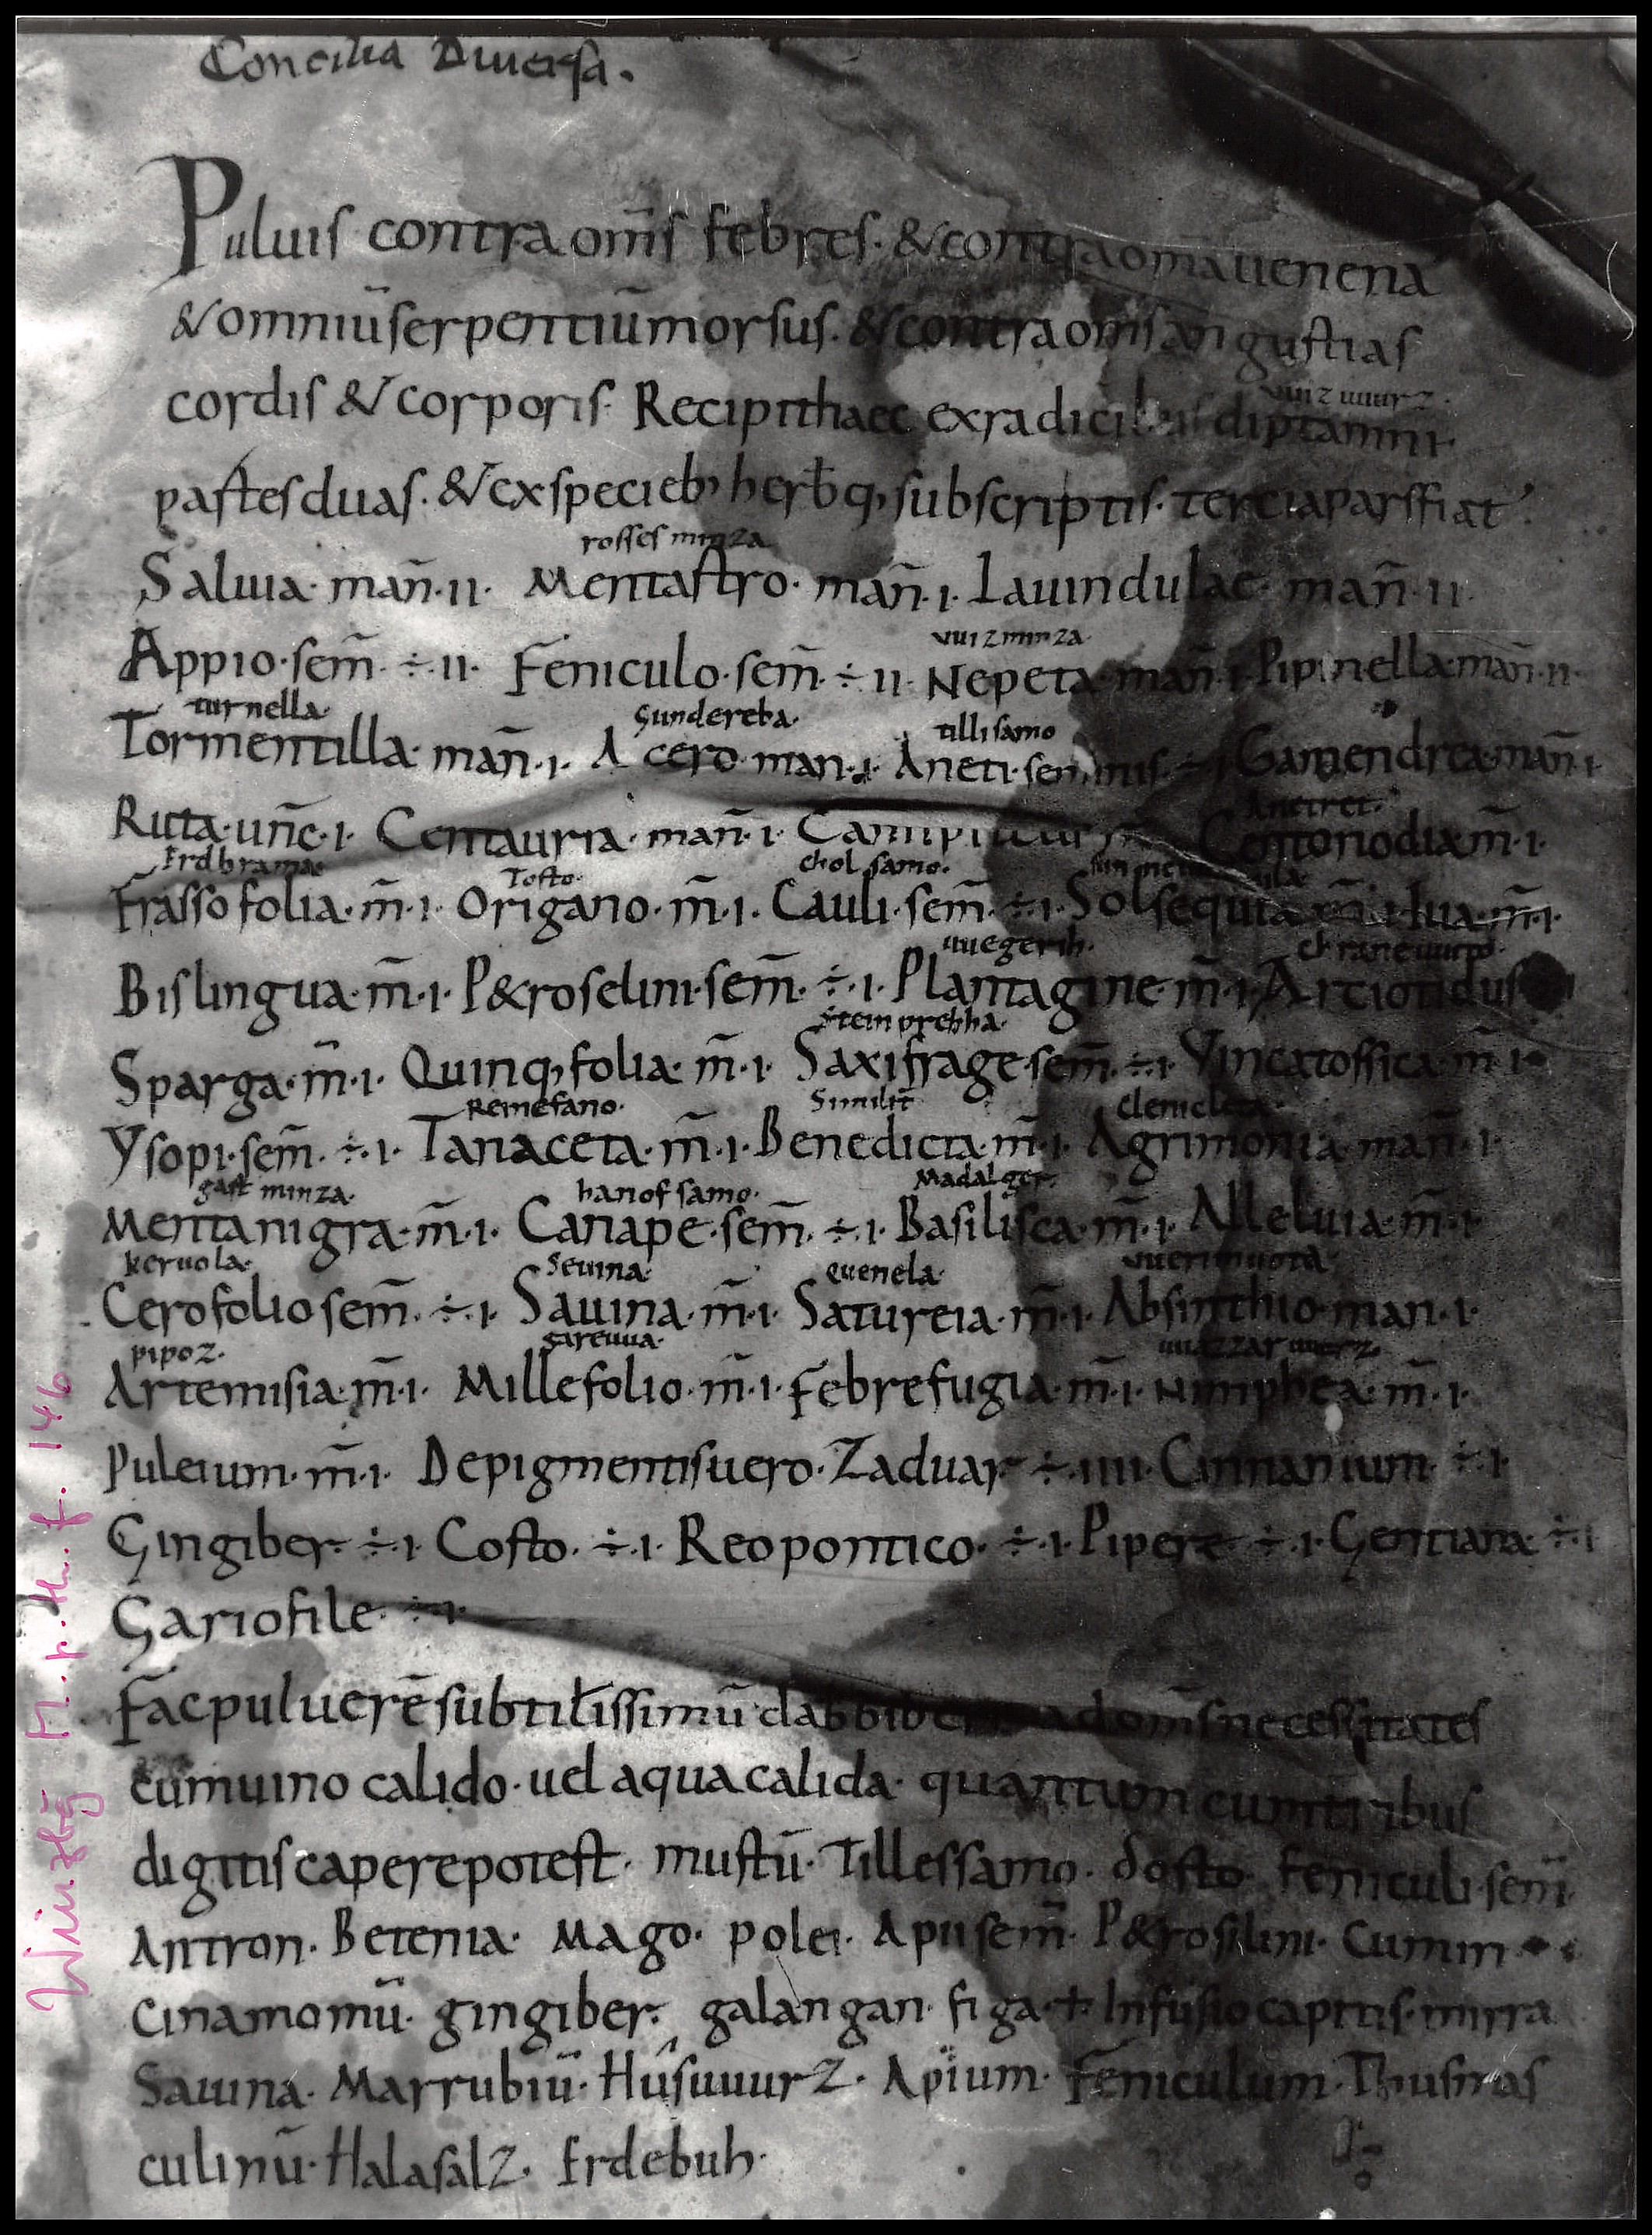 Concilia Diuersa.
Puluis contra om̄s febres· & contra om̄a uenena
& omniū serpentiū morsus· & contra om̄s angustias
cordis & corporis· Recipithaec exradicibus diptamni·
uuizuuurz·
pastesduas· & exspecieb; herbq; subscriptis· terciaparsfiat·
rosses minza
Saluia· man̄·II· Mentastro· man̄·I· Lauindulae· man̄·II·
uuizminza·
Appio·sem̄·÷·II· Feniculo·sem̄·÷·II· Nepeta man̄·I· Pipinella·man̄·II·
turnella· Gundereba· tillisamo
Tormentilla· man̄·I· Acero·man·I· Aneti·seminis·÷·I· Gamendrea·man̄·I·
Anetret·
Ruta·un̄c·I· Centauria· man̄·I· Centonodia·m̄·I·
Erdbrama· Tosto· chol samo·
Frasso folia·m̄·I· Origano·m̄·I· Cauli·sem̄·÷·I· Solsequia m̄·I· Iua·m̄·I·
uuegerih·
Bislingua·m̄·I· P&roselini·sem̄·÷·I· Plantagine·m̄·I·
steinprehha·
Sparga·m̄·I· Quinq;folia·m̄·I· Saxifrage·sem̄·÷·I· Vincatossica·m̄·I·
Remefano· Similit̄
Ysopi·sem̄·÷·I· Tanaceta·m̄·I· Benedicta·m̄·I· Agrimonia·man̄·I·
gast minza· hanof samo· Madalger·
Mentanigra·m̄·I· Canape·sem̄·÷·I· Basilisca·m̄·I· Alleluia·m̄·I·
keruola· Seuina· quenela· uuerimuota·
Cerofolio sem̄·÷·I· Sauina·m̄·I· Satureia·m̄·I· Absinthio·man·I·
pipoz· gareuua· uuazzaruurz·
Artemisia·m̄·I· Millefolio·m̄·I· Febrefugia·m̄·I· Nimphea·m̄·I·
Puleium·m̄·I· Depigmentisuero· Zaduar÷·IIII· Cinnanium·÷·I·
Gingiber·÷·I· Costo·÷·I· Reopontico·÷·I· Pipere÷·I· Gentiana÷·I
Gariofile·÷·I·
Fac puluerē subtil̄issimū dabbibere adom̄s necessitates
cumuino calido· uel aquacalida· quantum cumtribus
digitiscaperepotest· mustū· Tillessamo· dosto· feniculi·sem̄·
Antron· Betenia· Mago· polei· Apiisem̄· P&rosilini· Cumin
Cinamomū· gingiber· galangan· figa·+· Infusiocapitis·mirra
Sauina· Marrubiū· Húsuuurz· Apium· Feniculum· Thusmas
culinū· Halasalz· Erdebuh·
Würzbg M. p. th. f. 146